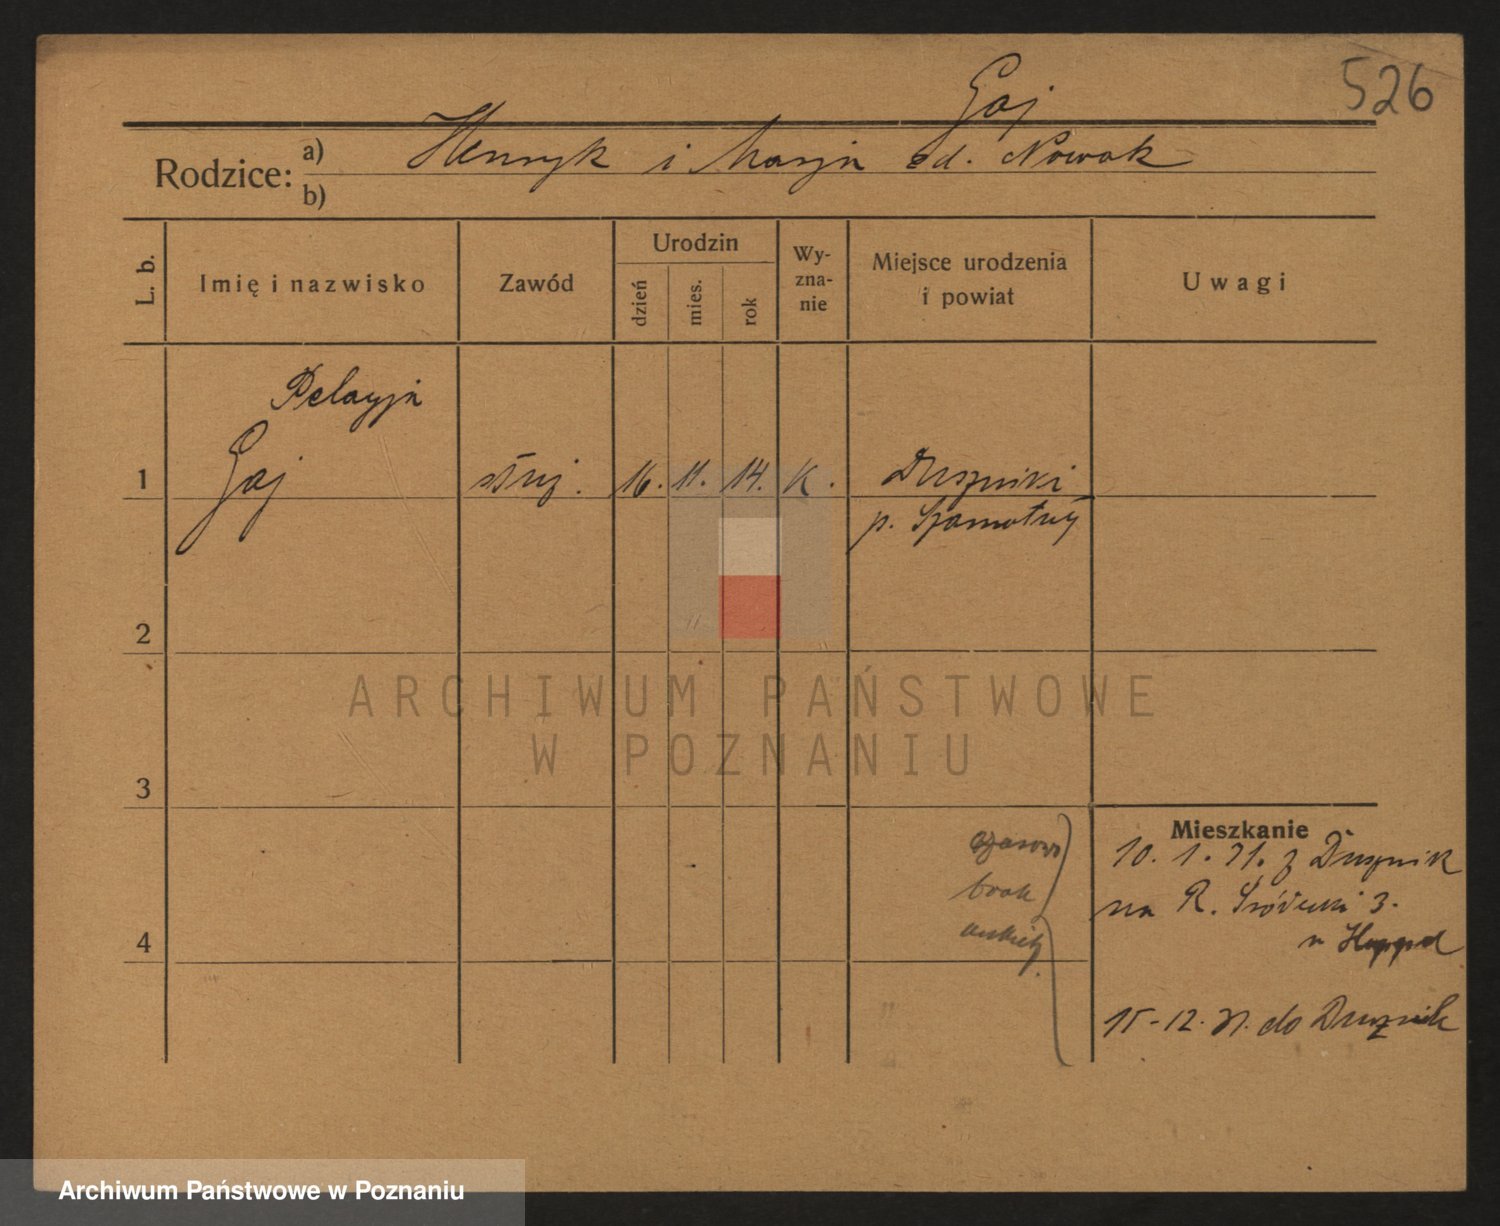 526
Gaj
Rodzice: a) Henryk i Marja zd. Nowak
b)
L. b.
Imię i nazwisko
Zawód
Urodzin
dzień
mies.
rok
Wy-
zna-
nie
Miejsce urodzenia
i powiat
Uwagi
Pelagja
1 Gaj służ. 16. 11. 14. K. Duszniki
p. Szamotuły
2
3
4
czasowo
brak
ankiety.
Mieszkanie
10. 1. 31. z Dusznik
na R. Śródecki 3.
15-12. 31. do Dusznik
ARCHIWUM PAŃSTWOWE
W POZNANIU
Archiwum Państwowe w Poznaniu